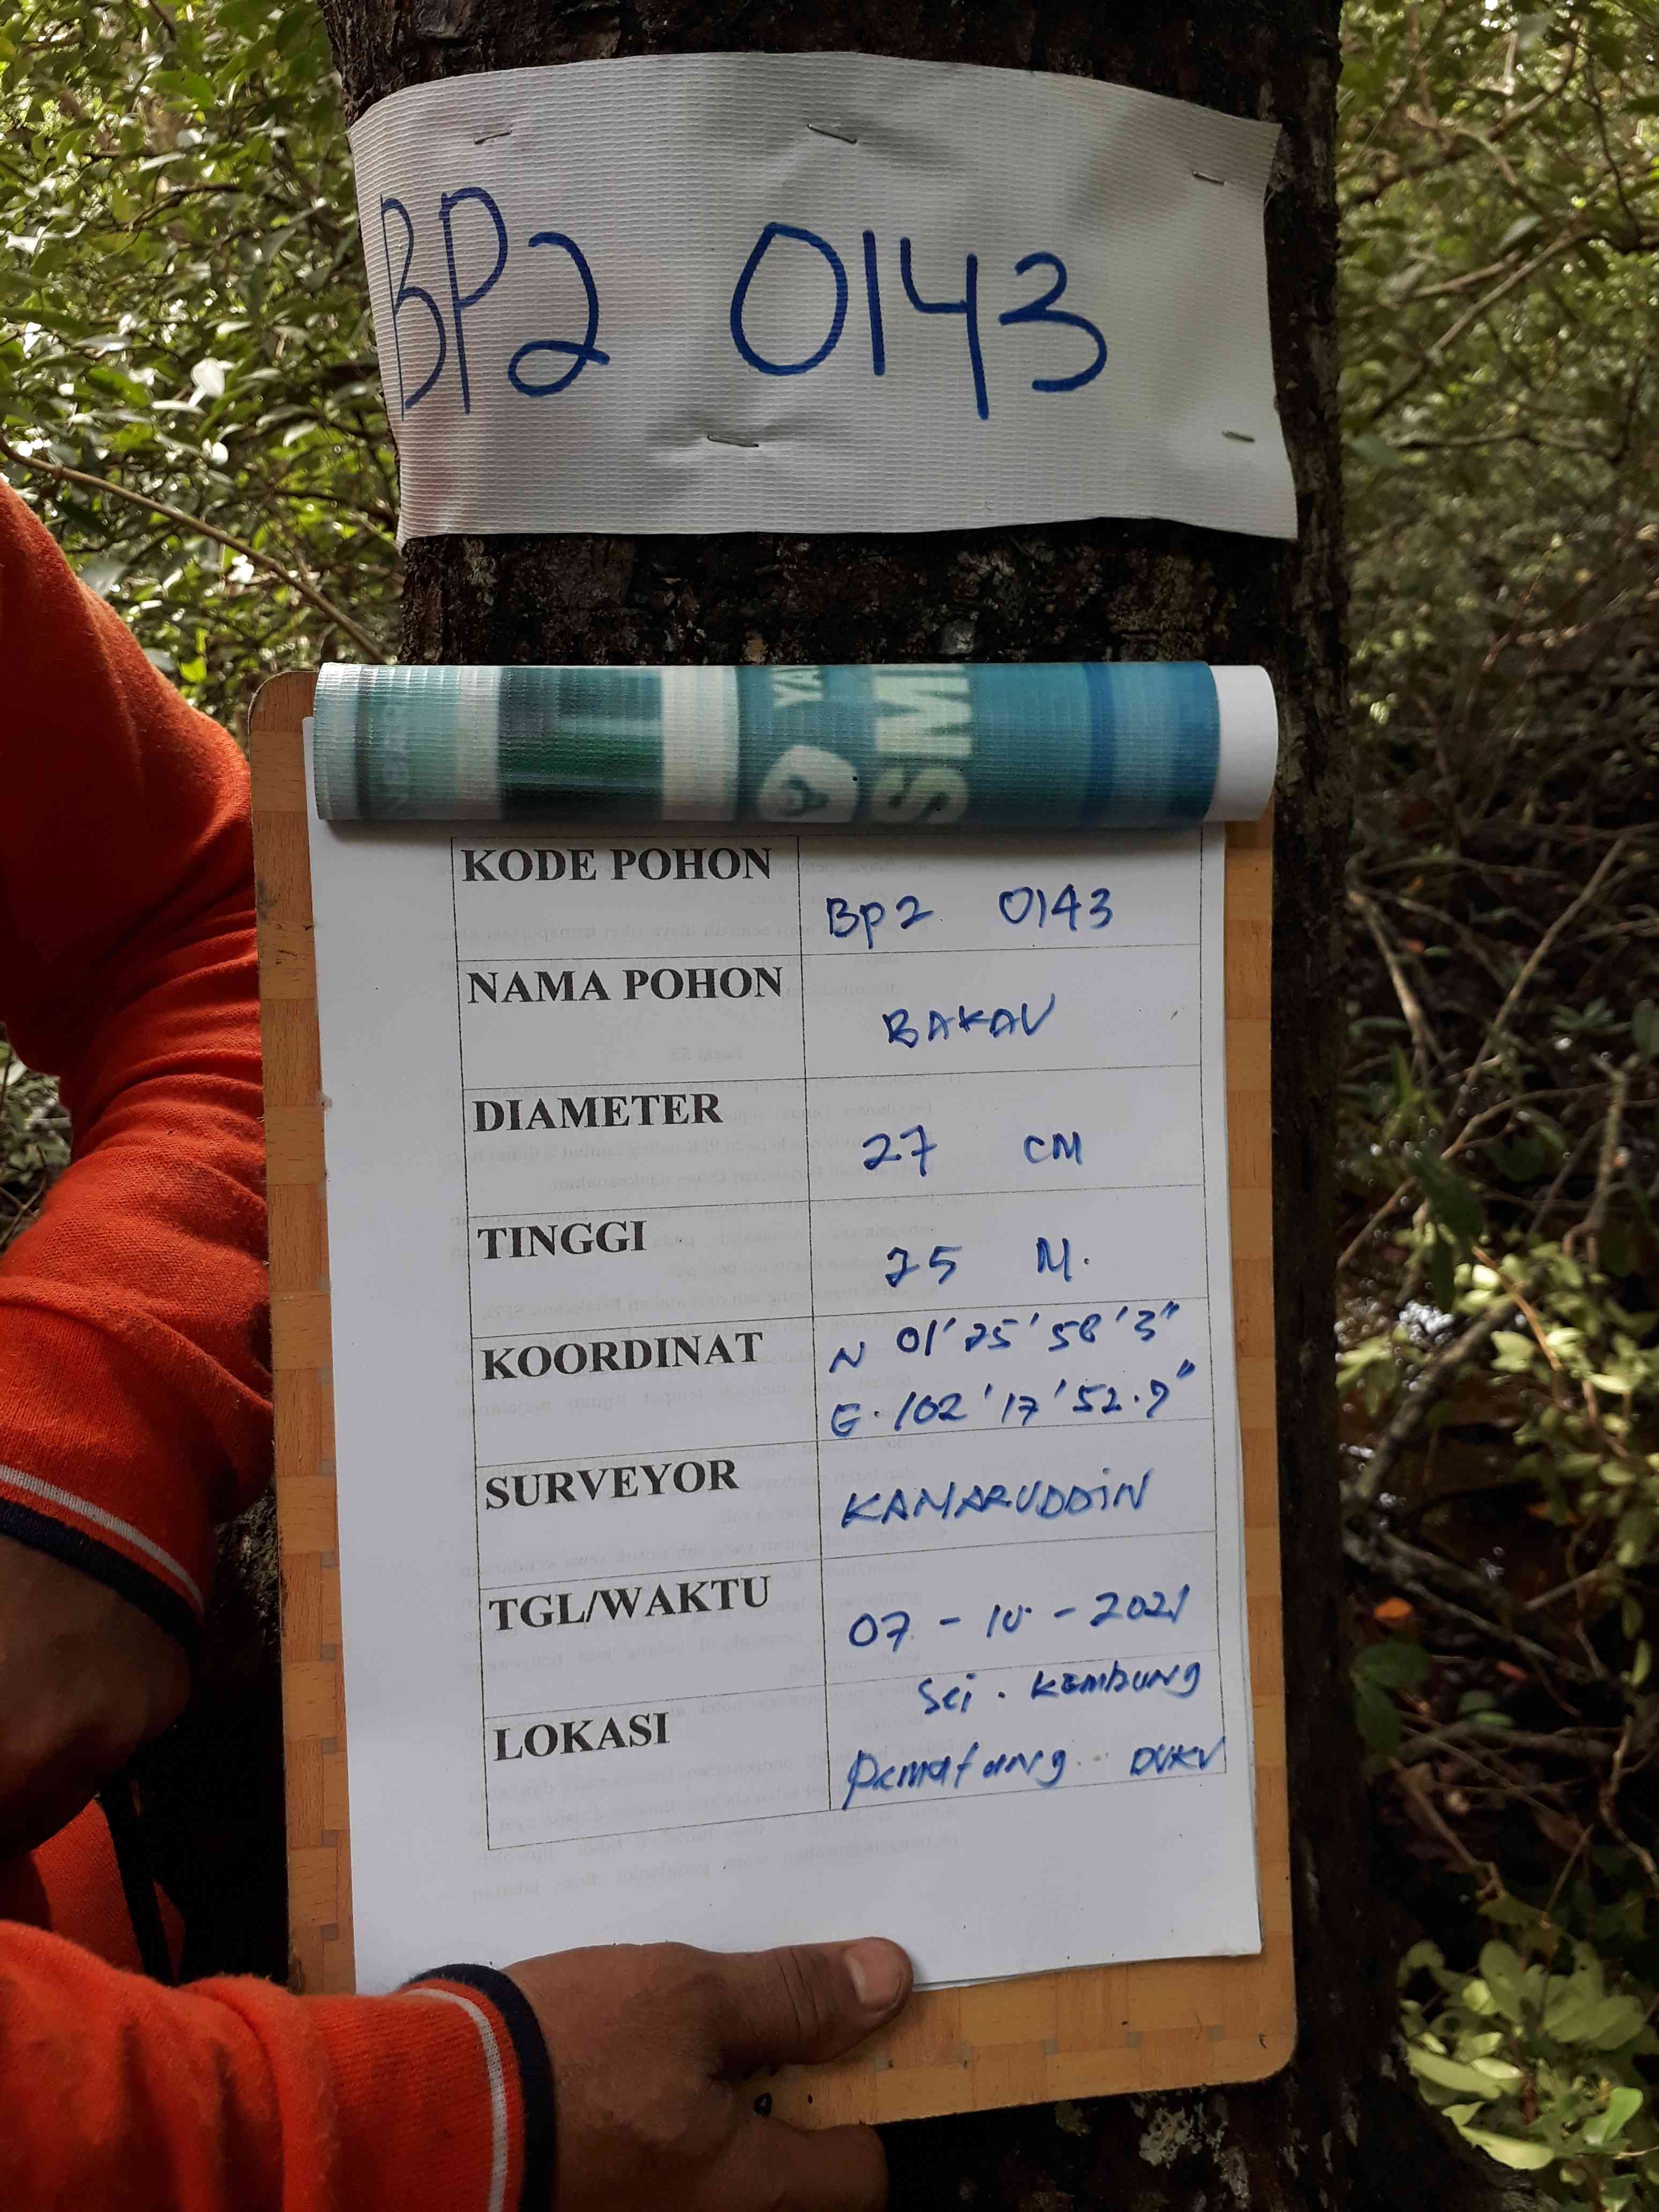 BP2 0143
YA
SM
KODE POHON
BP2 0143
NAMA POHON
BAKAU
DIAMETER
27 CM
TINGGI
25 M.
KOORDINAT
N 01' 25' 58' 3"
E. 102' 17' 52.9"
SURVEYOR
KAMARUDDiN
TGL/WAKTU
07 - 10 - 2021
LOKASI
Sei. KEMBUNG
Pematang DUKU